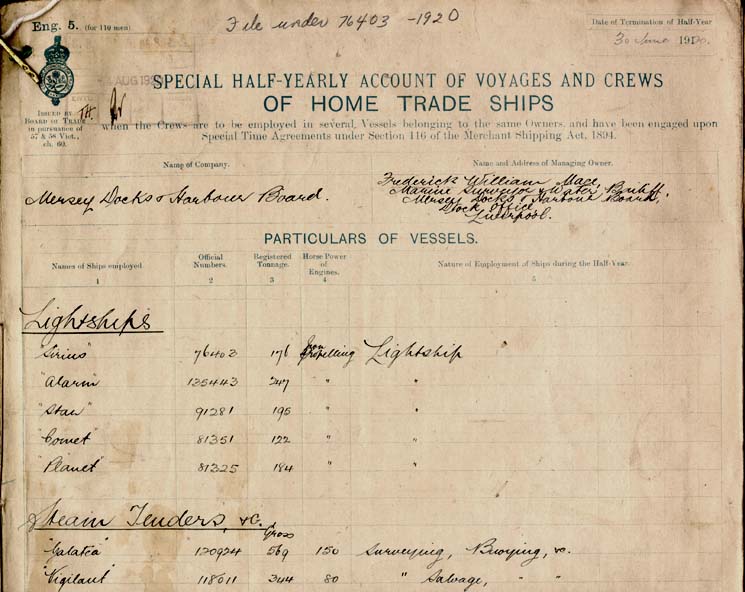 Eng. 5. (for 110 men)
File under 76403 -1920
Date of Termination of Half-Year
30 June 1920.
AUG 192
ISSUED BY
BOARD OF TRADE
in pursuance of
57 & 58 Vict.,
ch. 60.
SPECIAL HALF-YEARLY ACCOUNT OF VOYAGES AND CREWS
OF HOME TRADE SHIPS
when the Crews are to be employed in several Vessels belonging to the same Owners, and have been engaged upon
Special Time Agreements under Section 116 of the Merchant Shipping Act, 1894.
Name of Company.
Mersey Docks & Harbour Board.
Name and Address of Managing Owner.
Frederick William Mace
Marine Surveyor & Water Bailiff,
Mersey Docks & Harbour Board,
Dock Office
Liverpool.
PARTICULARS OF VESSELS.
Names of Ships employed. Official Numbers. Registered Tonnage. Horse Power of Engines. Nature of Employment of Ships during the Half-Year.
1 2 3 4 5
Lightships
"Sirius" 76403 176 Non Propelling Lightship
"Alarm" 135443 247 " "
"Star" 91281 195 " "
"Comet" 81351 122 " "
"Planet" 81325 184 " "
Steam Tenders, &c.
Gross
"Galatea" 120924 569 150 Surveying, Buoying, &c.
"Vigilant" 118011 344 80 " Salvage, " "